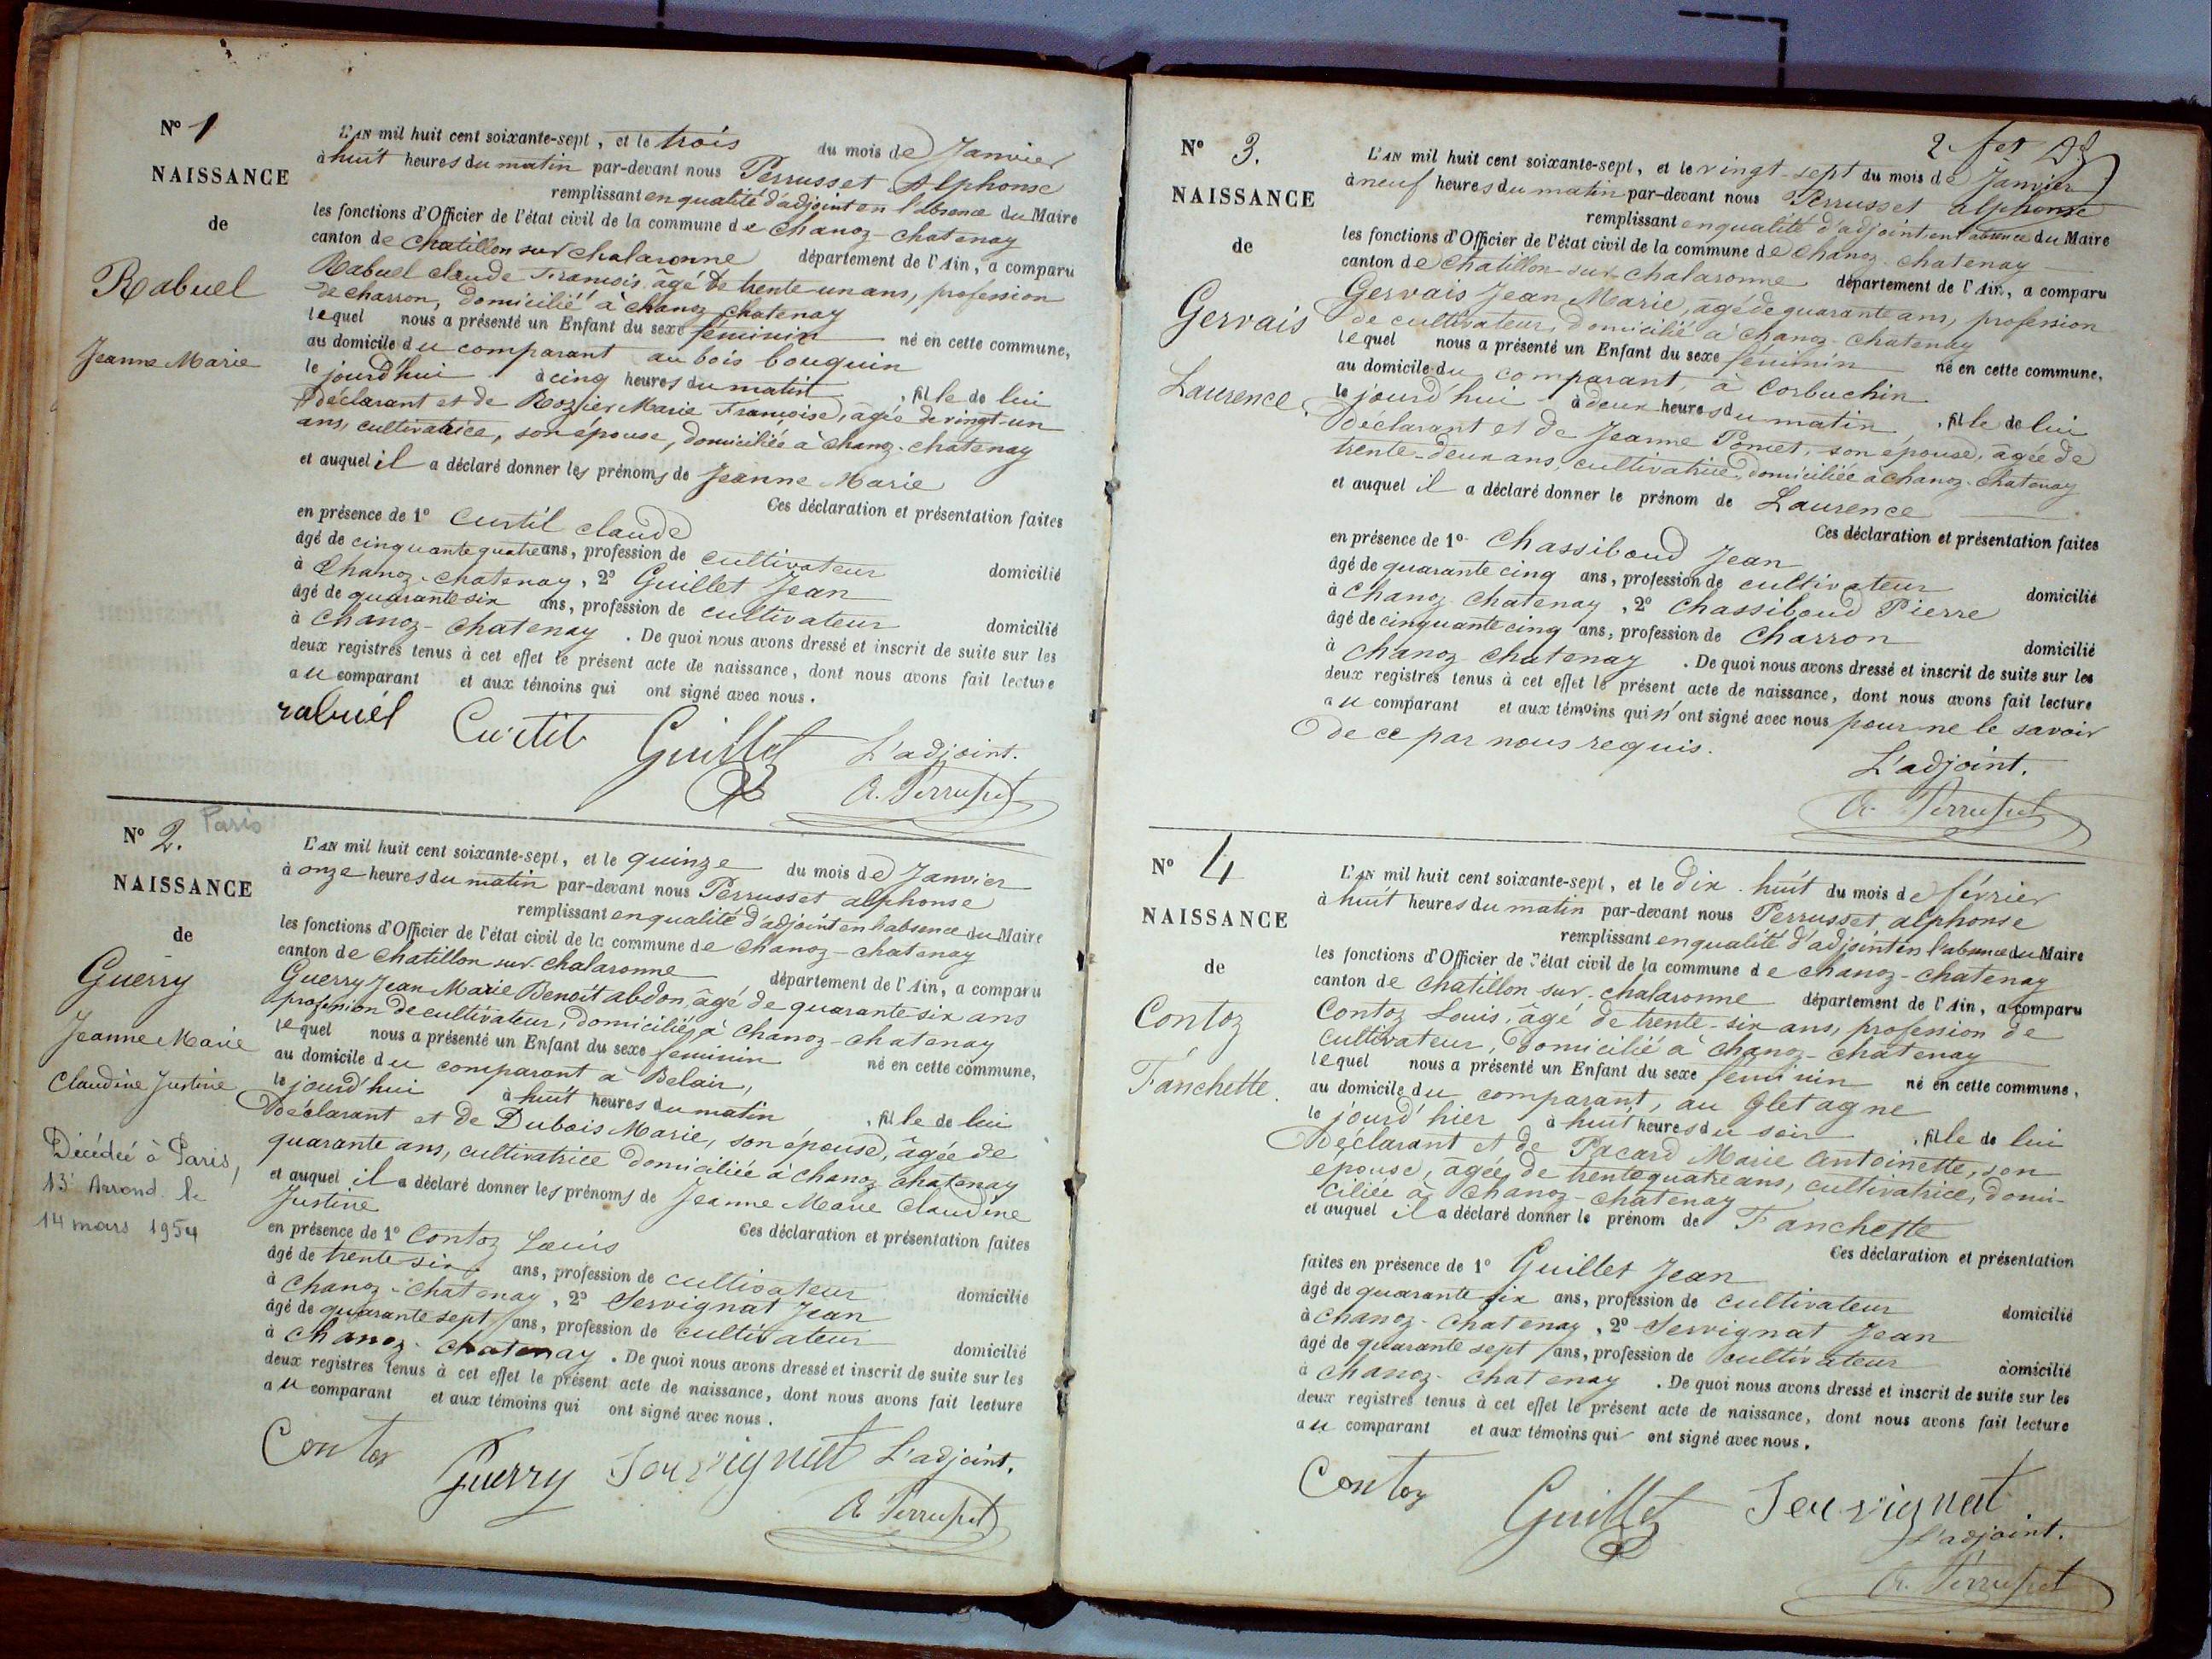 N° 1
NAISSANCE
de
Rabuel
Jeanne Marie
L'AN mil huit cent soixante-sept, et le trois du mois de Janvier
à huit heures du matin par-devant nous Perrusset Alphonse
remplissant en qualité d'adjoint en l'absence du Maire
les fonctions d'Officier de l'état civil de la commune de Chanoz-Chatenay
canton de Chatillon sur chalaronne département de l'Ain, a comparu
Rabuel claude François, âgé de trente un ans, profession
de charron, domicilié à chanoz chatenay
lequel nous a présenté un Enfant du sexe féminin né en cette commune,
au domicile du comparant au bois bouquin
le jourd'hui à cinq heures du matin, fille de lui
Déclarant et de Rozier Marie Françoise, âgée de vingt-un
ans, cultivatrice, son épouse, domiciliée à chanoz-chatenay
et auquel il a déclaré donner les prénoms de Jeanne Marie
Ces déclaration et présentation faites
en présence de 1° Curtil claude
âgé de cinquante quatre ans, profession de cultivateur domicilié
à Chanoz-chatenay, 2° Guillet Jean
âgé de quarante six ans, profession de cultivateur domicilié
à Chanoz-Chatenay. De quoi nous avons dressé et inscrit de suite sur les
deux registres tenus à cet effet le présent acte de naissance, dont nous avons fait lecture
au comparant et aux témoins qui ont signé avec nous.
rabuel Curtil Guillet L'adjoint.
A. Perrusset
N° 2. Paris
NAISSANCE
de
Guerry
Jeanne Marie
Claudine Justine
Décédée à Paris,
13e Arrond. le
14 mars 1954
L'AN mil huit cent soixante-sept, et le quinze du mois de Janvier
à onze heures du matin par-devant nous Perrusset alphonse
remplissant en qualité d'adjoint en l'absence du Maire
les fonctions d'Officier de l'état civil de la commune de Chanoz-chatenay
canton de Chatillon sur chalaronne département de l'Ain, a comparu
Guerry Jean Marie Benoît abdon, âgé de quarante six ans
profession de cultivateur, domicilié à Chanoz-chatenay
lequel nous a présenté un Enfant du sexe féminin né en cette commune,
au domicile du comparant à Belair,
le jourd'hui à huit heures du matin, fille de lui
Déclarant et de Dubois Marie, son épouse, âgée de
quarante ans, cultivatrice domiciliée à chanoz chatenay
et auquel il a déclaré donner les prénoms de Jeanne Marie Claudine
Justine
Ces déclaration et présentation faites
en présence de 1° Contoz Louis
âgé de trente six ans, profession de cultivateur domicilié
à Chanoz-chatenay, 2° Servignat Jean
âgé de quarante sept ans, profession de cultivateur domicilié
à chanoz-chatenay. De quoi nous avons dressé et inscrit de suite sur les
deux registres tenus à cet effet le présent acte de naissance, dont nous avons fait lecture
au comparant et aux témoins qui ont signé avec nous.
Contoz Guerry Servignat L'adjoint.
A. Perrusset
N° 3.
NAISSANCE
de
Gervais
Laurence.
L'AN mil huit cent soixante-sept, et le vingt-sept du mois de Janvier
à neuf heures du matin par-devant nous Perrusset alphonse
remplissant en qualité d'adjoint en l'absence du Maire
les fonctions d'Officier de l'état civil de la commune de Chanoz-chatenay
canton de Chatillon sur chalaronne département de l'Ain, a comparu
Gervais Jean Marie, âgé de quarante ans, profession
de cultivateur, domicilié à chanoz-chatenay
lequel nous a présenté un Enfant du sexe féminin né en cette commune,
au domicile du comparant, à Corbuchin
le jourd'hui à deux heures du matin, fille de lui
Déclarant et de Jeanne Poncet, son épouse, âgée de
trente-deux ans, cultivatrice, domiciliée à chanoz-chatenay
et auquel il a déclaré donner le prénom de Laurence
Ces déclaration et présentation faites
en présence de 1° Chassiboud Jean
âgé de quarante cinq ans, profession de cultivateur domicilié
à Chanoz-Chatenay, 2° Chassiboud Pierre
âgé de cinquante cinq ans, profession de Charron domicilié
à Chanoz Chatenay. De quoi nous avons dressé et inscrit de suite sur les
deux registres tenus à cet effet le présent acte de naissance, dont nous avons fait lecture
au comparant et aux témoins qui n'ont signé avec nous pour ne le savoir
de ce par nous requis.
L'adjoint.
A. Perrusset
N° 4
NAISSANCE
de
Contoz
Fanchette.
L'AN mil huit cent soixante-sept, et le dix-huit du mois de février
à huit heures du matin par-devant nous Perrusset alphonse
remplissant en qualité d'adjoint en l'absence du Maire
les fonctions d'Officier de l'état civil de la commune de chanoz-chatenay
canton de Chatillon sur-chalaronne département de l'Ain, a comparu
Contoz Louis, âgé de trente-six ans, profession de
cultivateur, domicilié à chanoz-chatenay
lequel nous a présenté un Enfant du sexe féminin né en cette commune,
au domicile du comparant, au Gletagne
le jourd'hier à huit heures du soir, fille de lui
Déclarant et de Pacard Marie Antoinette, son
épouse, âgée de trente quatre ans, cultivatrice, domi-
ciliée à Chanoz-chatenay
et auquel il a déclaré donner le prénom de Fanchette
Ces déclaration et présentation
faites en présence de 1° Guillet Jean
âgé de quarante six ans, profession de cultivateur domicilié
à chanoz-chatenay, 2° Servignat Jean
âgé de quarante sept ans, profession de cultivateur domicilié
à chanoz-chatenay. De quoi nous avons dressé et inscrit de suite sur les
deux registres tenus à cet effet le présent acte de naissance, dont nous avons fait lecture
au comparant et aux témoins qui ont signé avec nous.
Contoz Guillet Servignat
L'adjoint.
A. Perrusset